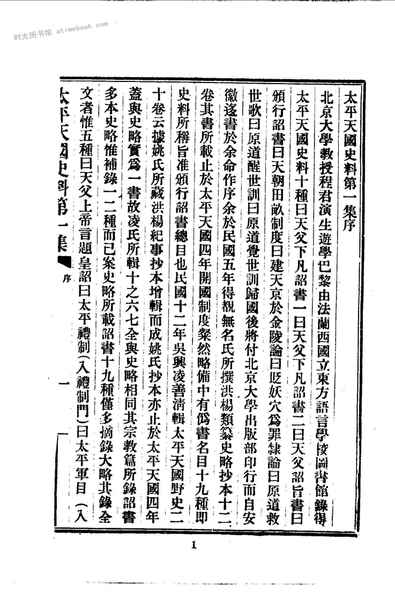 时光图书馆 atimebook.com
太平天國史料第一集序
北京大學教授程君演生遊學巴黎由法蘭西國立東方語言學校圖書館錄得
太平天國史料十種曰天父下凡詔書一曰天父下凡詔書二曰天父詔旨書曰
頒行詔書曰天朝田畝制度曰建天京於金陵論曰貶妖穴爲罪隸論曰原道救
世歌曰原道醒世訓曰原道覺世訓歸國後將付北京大學出版部印行而自安
徽逐書於余命作序余於民國五年得覩無名氏所撰洪楊類纂史略抄本十二
卷其書所載止於太平天國四年開國制度粲然略備中有僞書名目十九種即
史料所稱旨准頒行詔書總目也民國十二年吳興凌善清輯太平天國野史二
十卷云據姚氏所藏洪楊紀事抄本增輯而成姚氏抄本亦止於太平天國四年
蓋與史略實爲一書故凌氏所輯十之六七全與史略相同其宗教篇所錄詔書
多本史略惟補錄一二種而已案史略所載詔書十九種僅多摘錄大略其錄全
文者惟五種曰天父上帝言題皇詔曰太平禮制(入禮制門)曰太平軍目(入
太平天國史料第一集 序 一
1